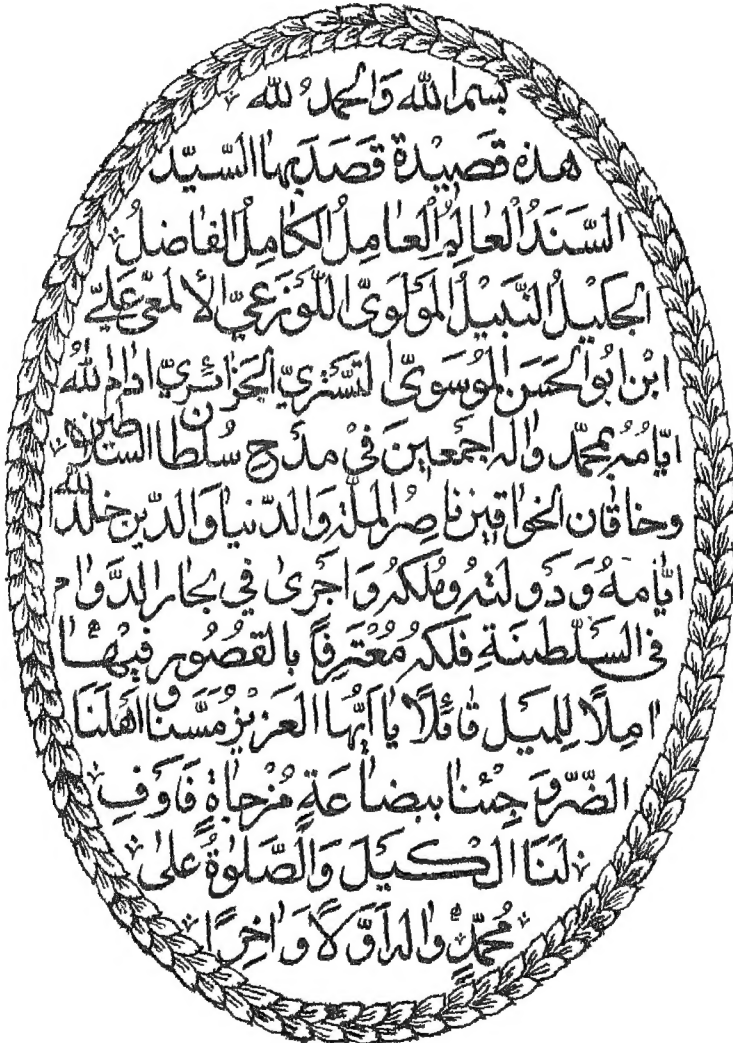 بسم الله والحمد لله
هذه قَصِيْدة قَصَدَ بِهَا السَّيِّد
السَّنَدُ العَالِمُ العَامِلُ الكَامِلُ الفَاضِلُ
الجَلِيْلُ النَّبِيْلُ المَوْلَوِىّ اللَّوْذَعِىّ الألمَعِىّ عَلِيّ
ابن ابو الحَسَن المُوسَوِىّ التُستَرِيّ الجَزَائِرِيّ ادَامَ اللهُ
ايّامهُ بمحمّد واٰلهِ اجمَعِيْنَ فِيْ مدَحِ سُلطان السَّلاطين
وخاقان الخواقين ناصِر المِلّة والدّنيا والدِّين خلّد الله
ايّامهُ وَدَولتهُ ومُلكهُ وَاَجرَىٰ في بحار الدَّوَام
فى السَلْطَنَةِ فلكهُ مُعْتَرِفًا بالقصُورِ فِيْهَا
اٰمِلًا لِلمَيل قَائِلًا يا اَيُّهَا العَزِيْزُ مَسَّنَا وَاَهْلَنَا
الضّرّ وَجِئنا ببضاعَةٍ مُزجَاةٍ فَاَوفِ
لَنَا الكَيْلَ وَالصَّلوٰةُ عَلىٰ
مُحَمَّدٍ وَاٰلِهِ اَوَّلًا وَاٰخِرًا